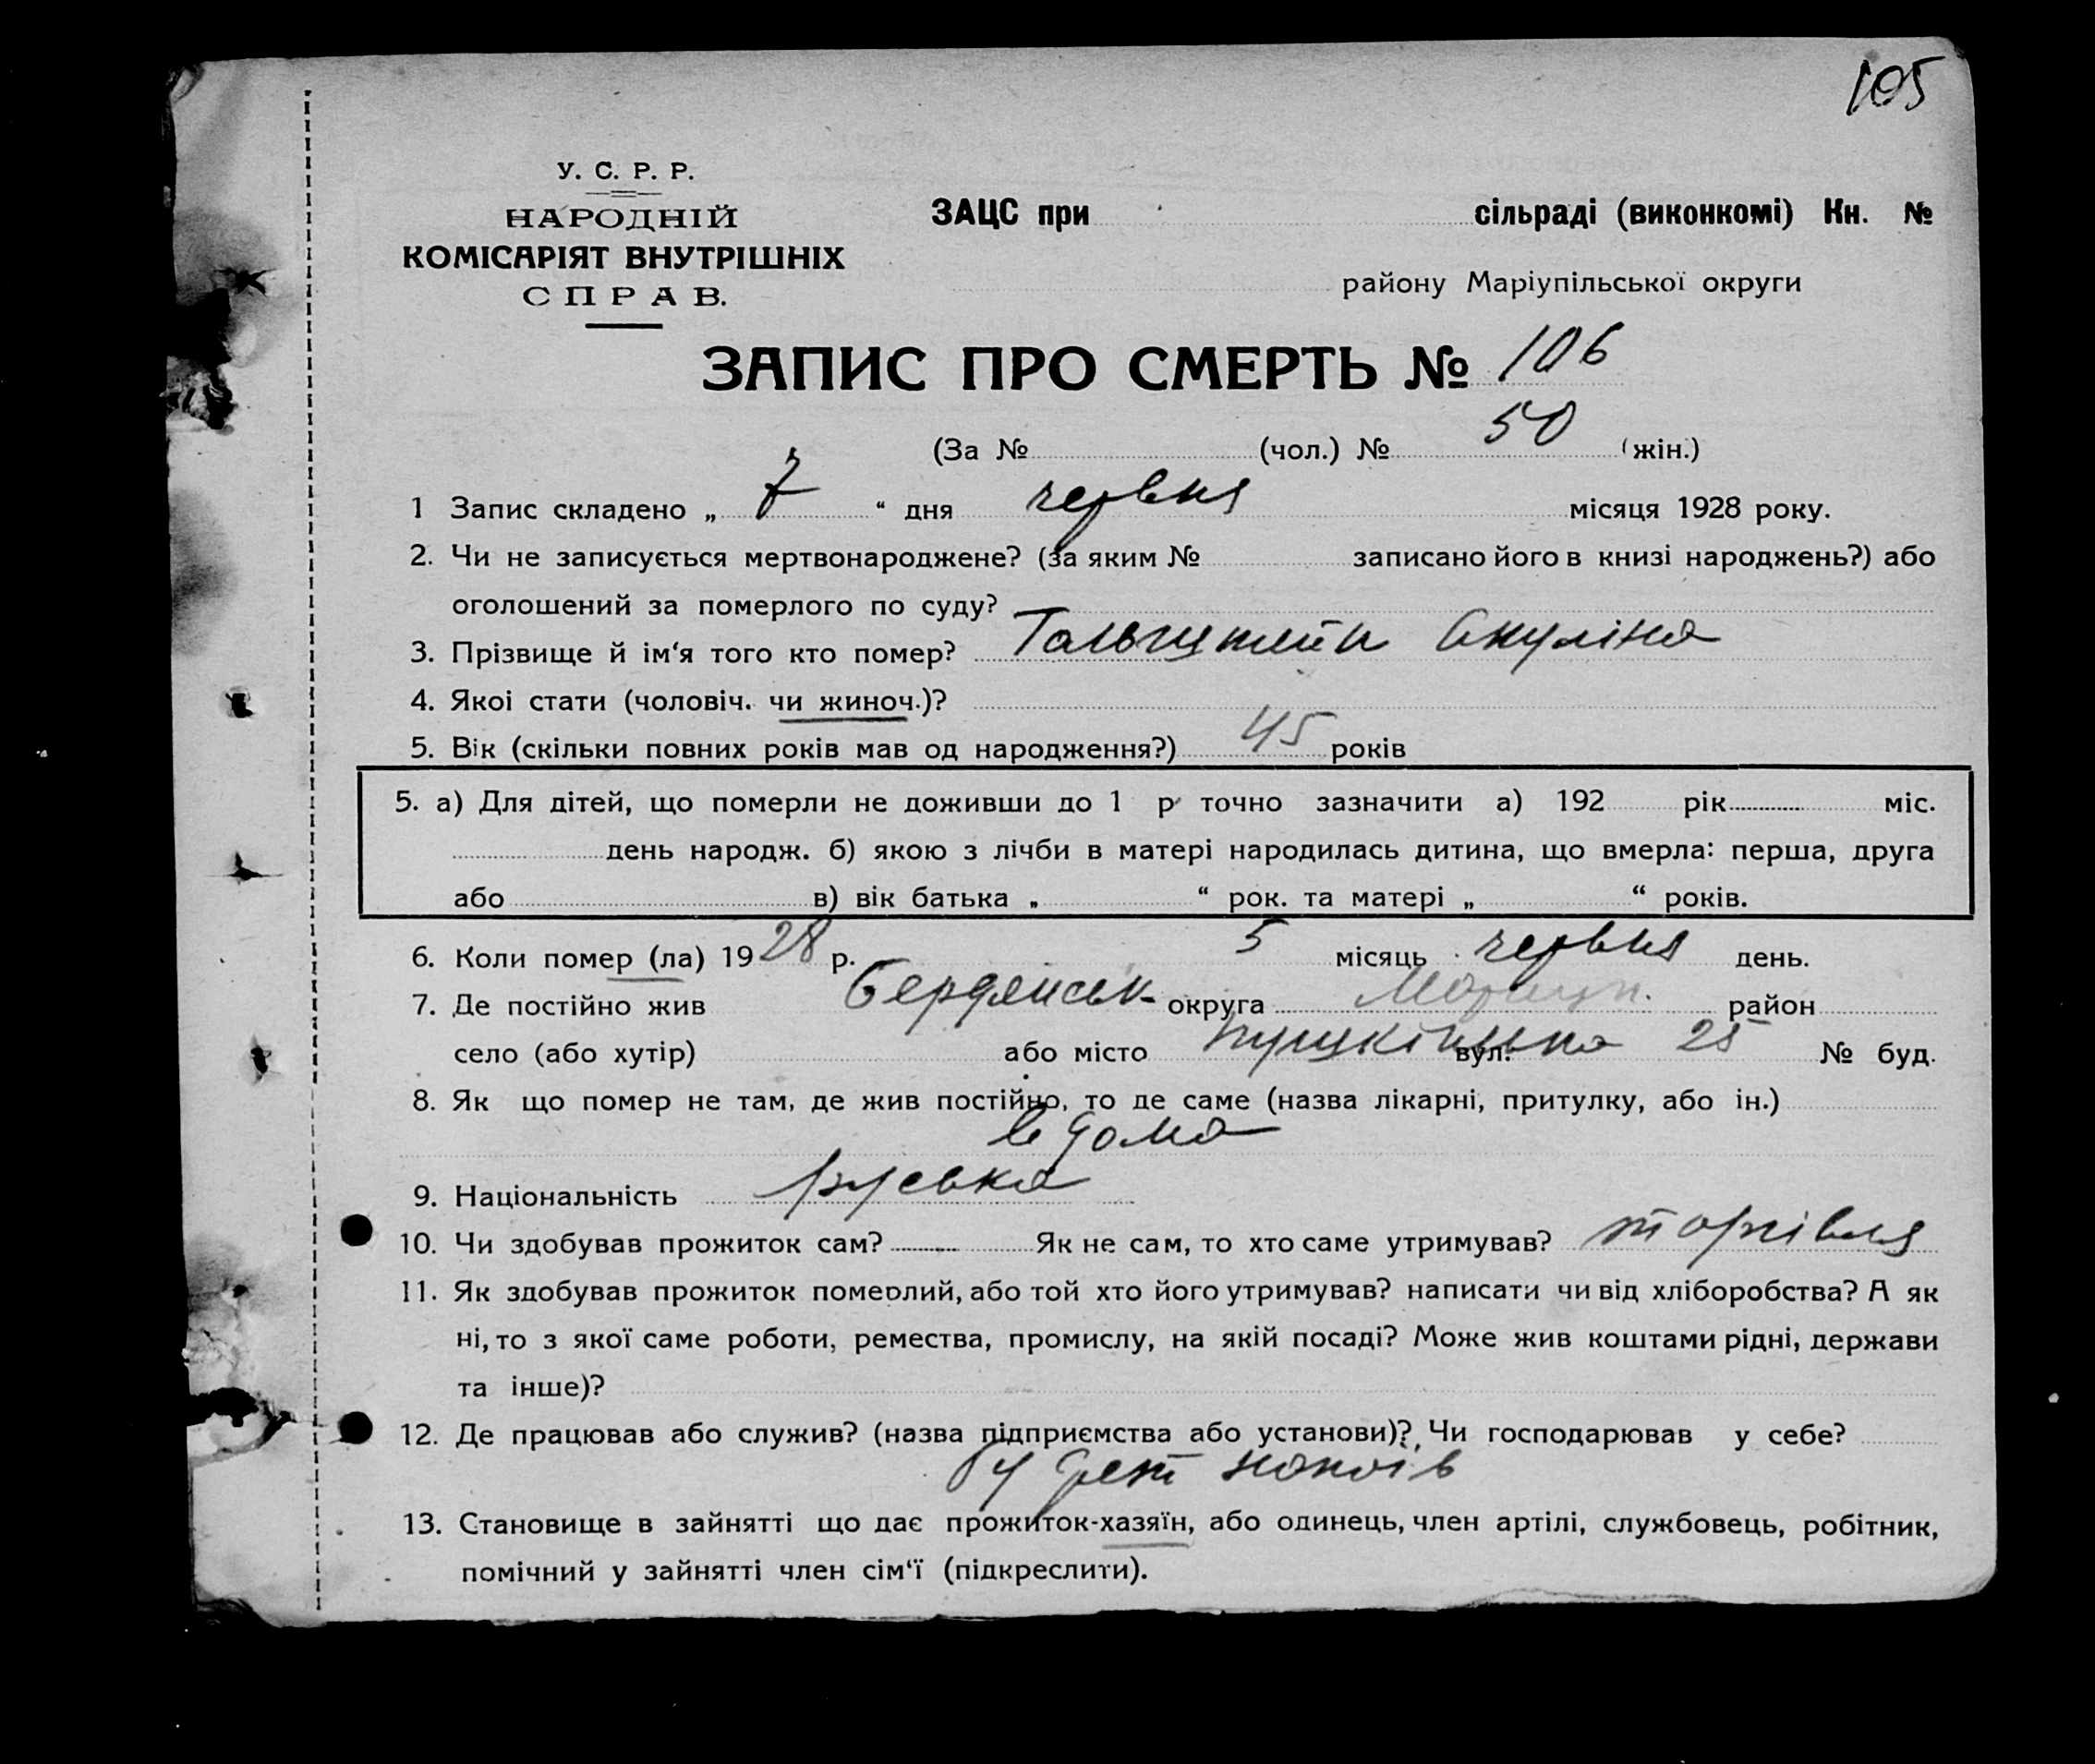 105
У. С. Р. Р.
НАРОДНІЙ
КОМІСАРІЯТ ВНУТРІШНІХ
СПРАВ.
ЗАЦС при сільраді (виконкомі) Кн. №
району Маріупільської округи
ЗАПИС ПРО СМЕРТЬ № 106
(За № (чол.) № 50 (жін.)
1 Запис складено „ 7 “ дня червня місяця 1928 року.
2. Чи не записується мертвонароджене? (за яким № записано його в книзі народжень?) або
оголошений за померлого по суду?
3. Прізвище й ім‘я того кто помер? Акуліна
4. Якоі стати (чоловіч. чи жиноч.)?
5. Вік (скільки повних років мав од народження?) 45 років
5. а) Для дітей, що померли не доживши до 1 р точно зазначити а) 192 рік міс.
день народж. б) якою з лічби в матері народилась дитина, що вмерла: перша, друга
або в) вік батька „ “ рок. та матері „ “ років.
6. Коли помер (ла) 1928 р. 5 місяць червня день.
7. Де постійно жив Бердянськ округа Маріуп. район
село (або хутір) або місто Пушкінська вул. 25 № буд.
8. Як що помер не там, де жив постійно, то де саме (назва лікарні, притулку, або ін.)
в дома
9. Національність руська
10. Чи здобував прожиток сам? Як не сам, то хто саме утримував? торгівля
11. Як здобував прожиток померлий, або той хто його утримував? написати чи від хліборобства? А як
ні, то з якої саме роботи, ремества, промислу, на якій посаді? Може жив коштами рідні, держави
та інше)?
12. Де працював або служив? (назва підприємства або установи)? Чи господарював у себе?
напоїв
13. Становище в зайнятті що дає прожиток-хазяїн, або одинець, член артілі, службовець, робітник,
помічний у зайнятті член сім‘ї (підкреслити).